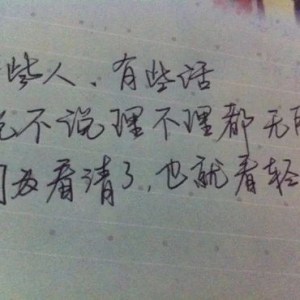 些人、有些话
说不说理不理都无
因为看清了，也就看轻